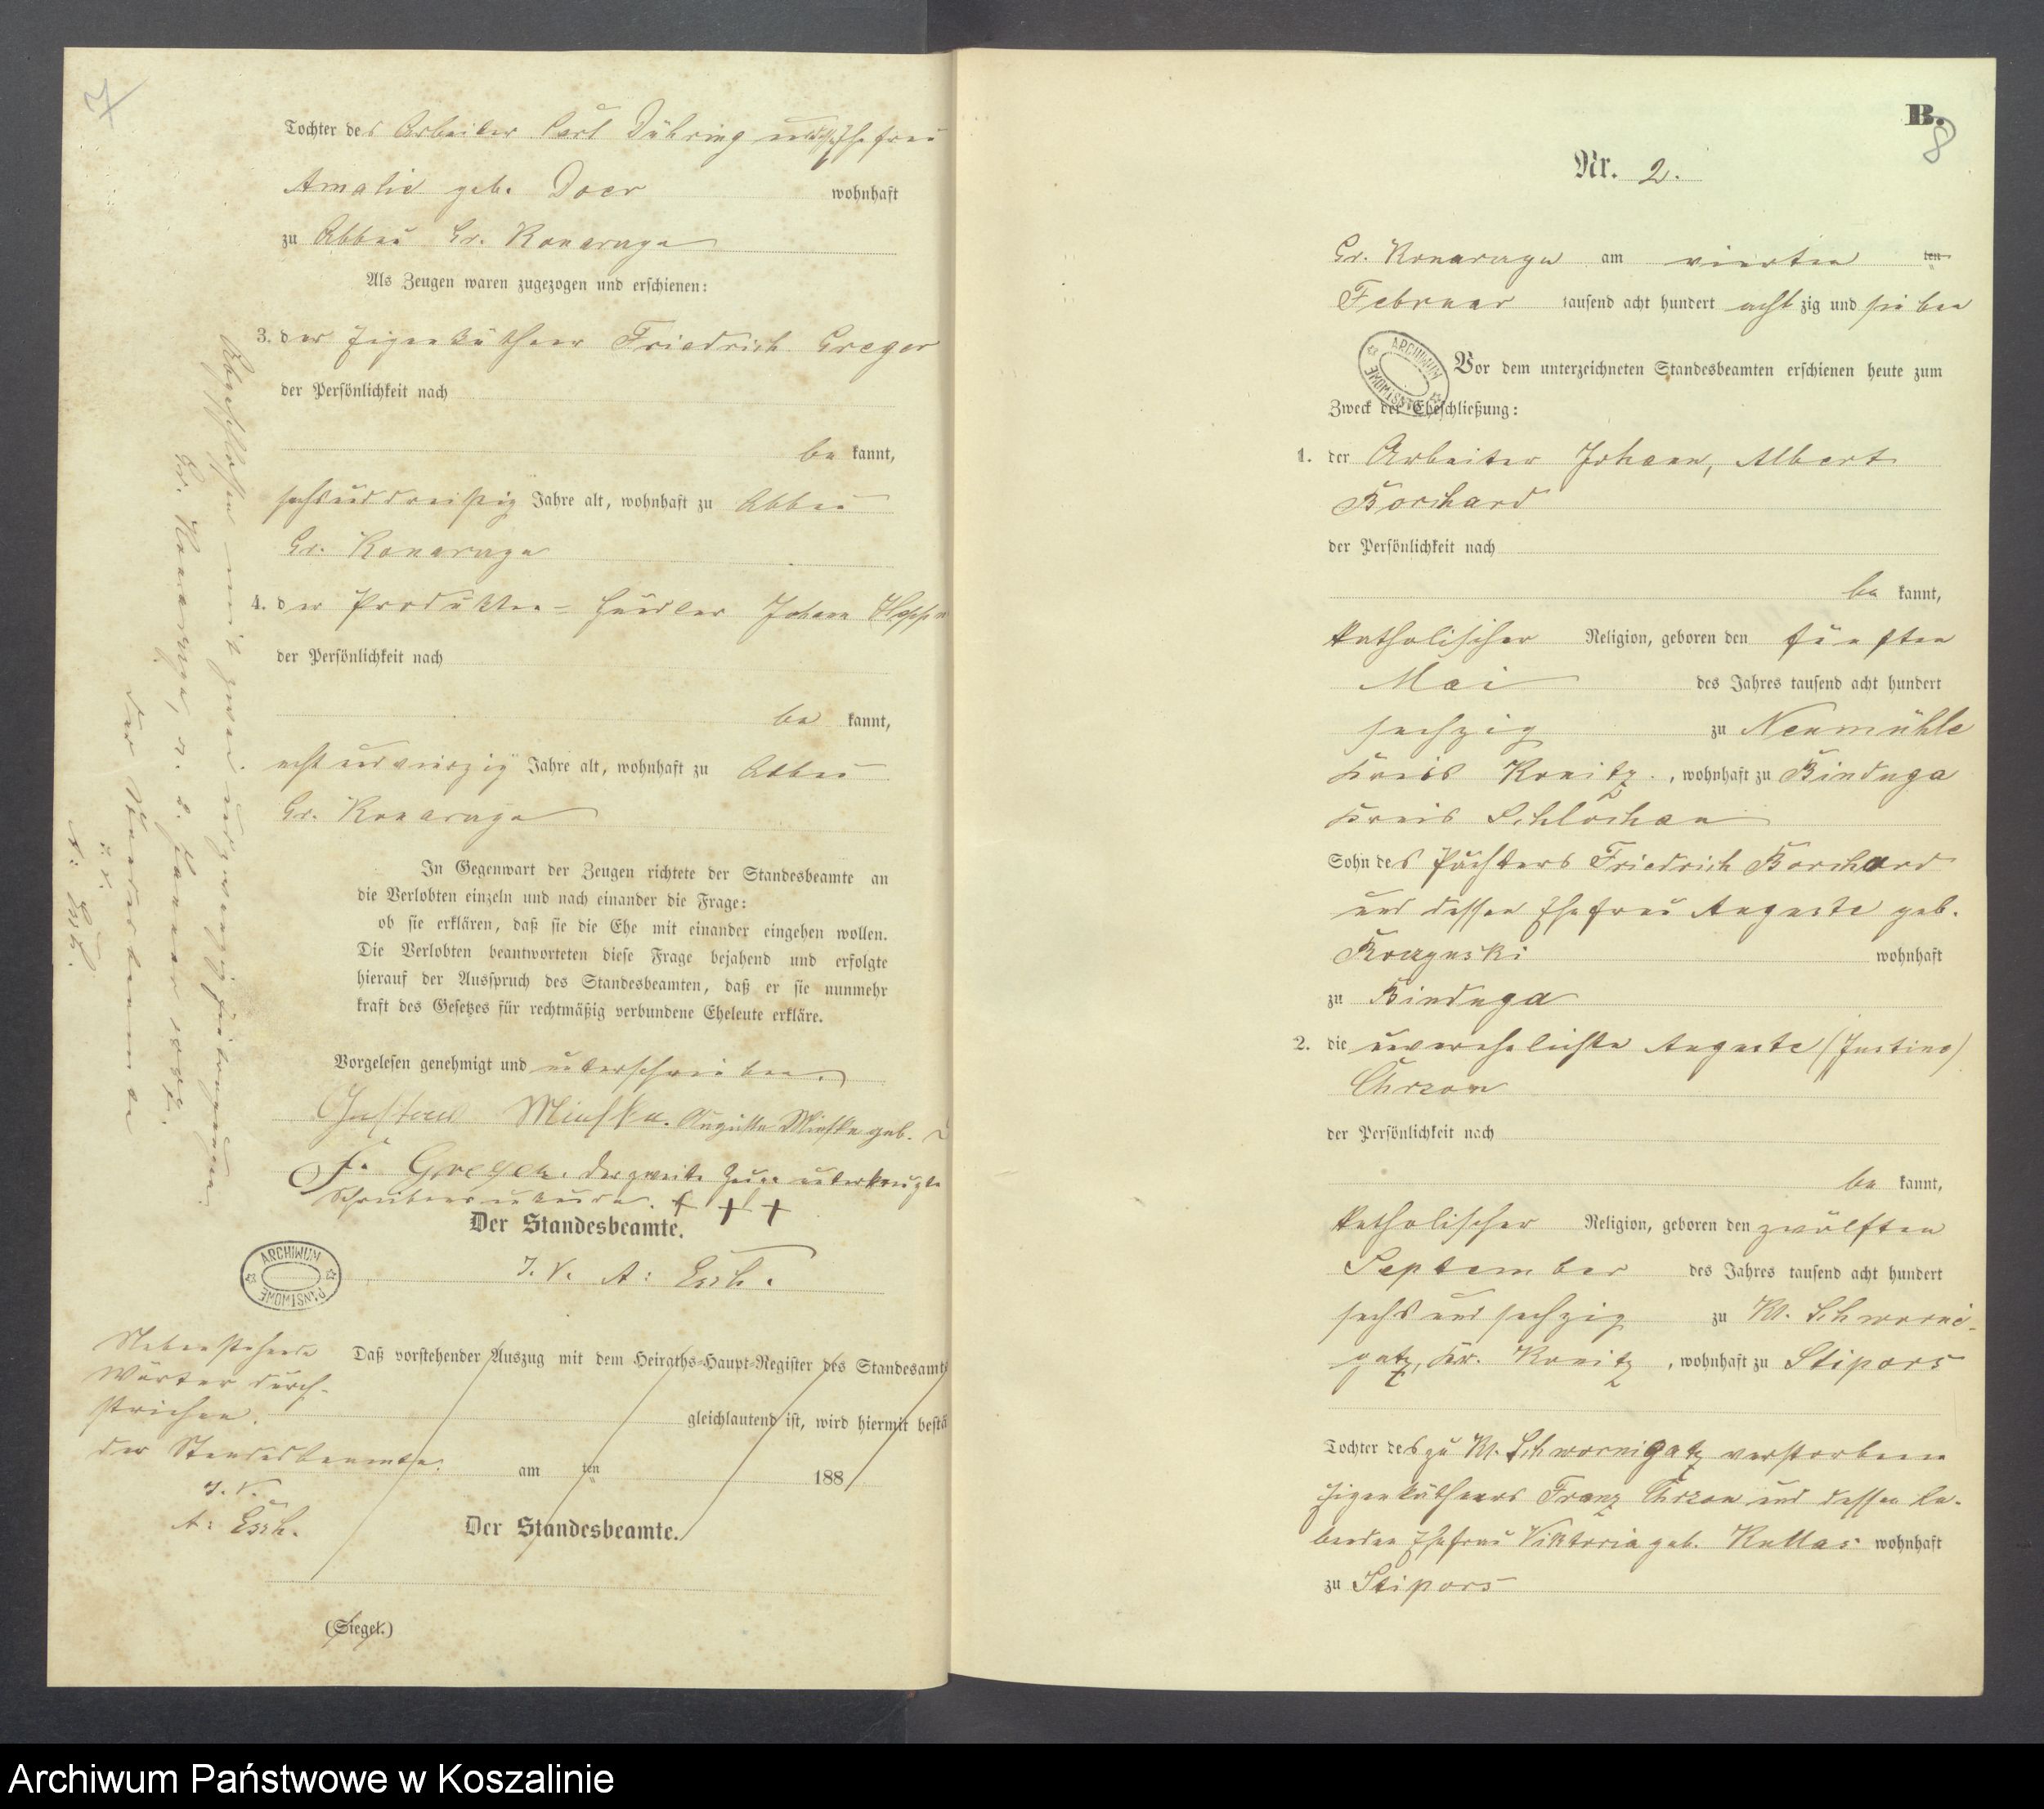 7
Tochter des Arbeiter Carl Dühring und Ehefrau
Amalie geb. Doer wohnhaft
zu Abbau Gr. Konarzyn
Als Zeugen waren zugezogen und erschienen:
3. der Eigenkäthner Friedrich Greger
der Persönlichkeit nach
be kannt,
sechsunddreißig Jahre alt, wohnhaft zu Abbau
Gr. Konarzyn
4. der Produkten-Händler Johann
der Persönlichkeit nach
be kannt,
achtundvierzig Jahre alt, wohnhaft zu Abbau
Gr. Konarzyn
In Gegenwart der Zeugen richtete der Standesbeamte an
die Verlobten einzeln und nach einander die Frage:
ob sie erklären, daß sie die Ehe mit einander eingehen wollen.
Die Verlobten beantworteten diese Frage bejahend und erfolgte
hierauf der Ausspruch des Standesbeamten, daß er sie nunmehr
kraft des Gesetzes für rechtmäßig verbundene Eheleute erkläre.
Vorgelesen genehmigt und unterschrieben.
Gustav Mieske. Auguste Mieske geb.
F. Greger. Der zweite Zeuge unterkreuzte
Schreibensunkund. + + +
Der Standesbeamte.
I. V. A:
ARCHIWUM PAŃSTWOWE
Nebenstehende
Wörter durch-
strichen.
der Standesbeamte.
I. V.
A:
Daß vorstehender Auszug mit dem Heiraths-Haupt-Register des Standesamts
gleichlautend ist, wird hiermit bestä
am ten 188
Der Standesbeamte.
(Siegel.)
Abgeschlossen mit zwei und zwanzig Eintragungen
Gr. Konarzyn,
Der Standesbeamte
I. V.
A:
B.
8
Nr. 2.
Gr. Konarzyn am vierten ten
Februar tausend acht hundert acht zig und sieben
ARCHIWUM PAŃSTWOWE
Vor dem unterzeichneten Standesbeamten erschienen heute zum
Zweck der Eheschließung:
1. der Arbeiter Johann, Albert
Borchard
der Persönlichkeit nach
be kannt,
katholischer Religion, geboren den fünften
Mai des Jahres tausend acht hundert
sechzig zu Neumühle
Kreis Konitz, wohnhaft zu Binduga
Kreis Schlochau
Sohn des Pächters Friedrich Borchard
und dessen Ehefrau Auguste geb.
wohnhaft
zu Binduga
2. die unverehelichte Auguste (Justine)
Chrzan
der Persönlichkeit nach
be kannt,
katholischer Religion, geboren den zwölften
September des Jahres tausend acht hundert
sechs und sechzig zu Kl. Schworni-
gatz, Kr. Konitz, wohnhaft zu Stipors
Tochter des zu Kl. Schwornigatz verstorbenen
Eigenkäthners Franz Chrzan und dessen le-
benden Ehefrau Viktoria geb. wohnhaft
zu Stipors
Archiwum Państwowe w Koszalinie